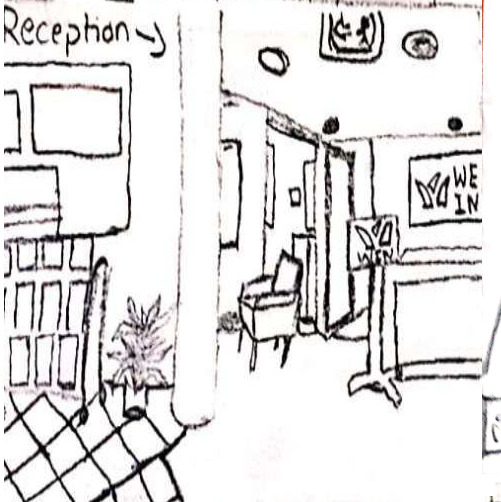 Reception
WE
IN
WIN